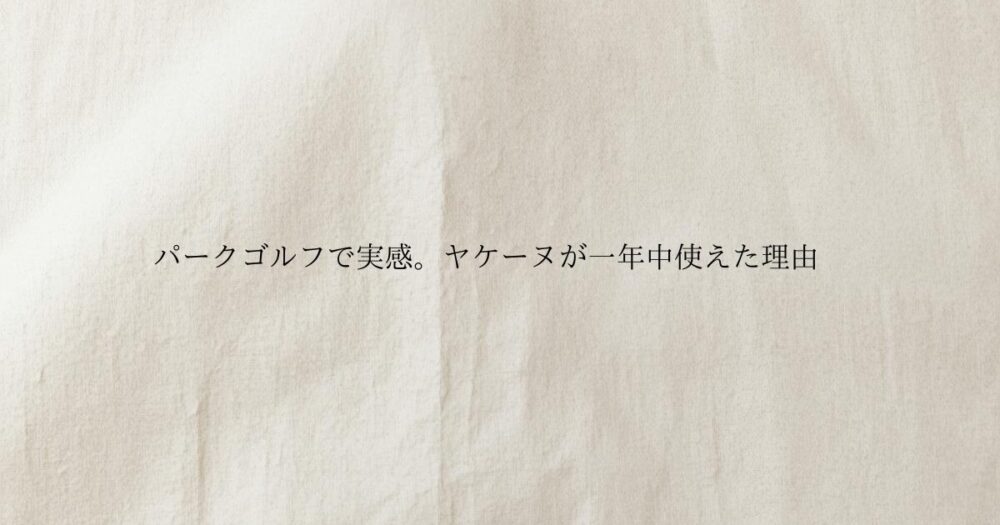 パークゴルフで実感。ヤケーヌが一年中使えた理由